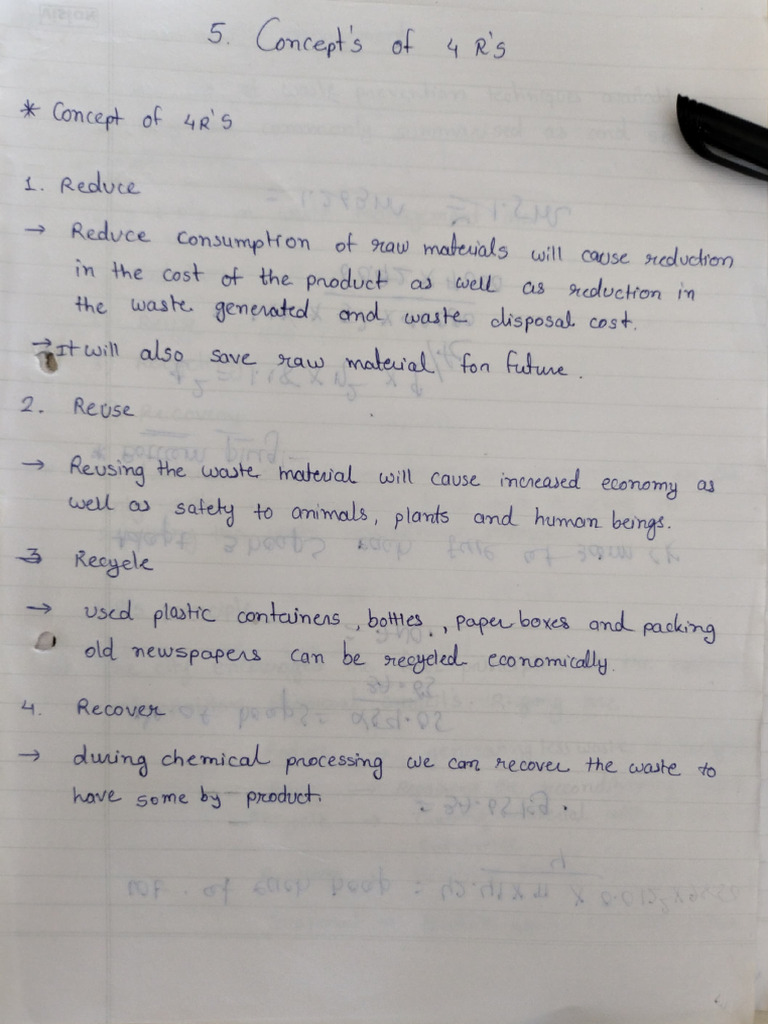 5. Concept's of 4 R's
* Concept of 4R's
1. Reduce
→ Reduce consumption of raw materials will cause reduction
in the cost of the product as well as reduction in
the waste generated and waste disposal cost.
→ It will also save raw material for future.
2. Reuse
→ Reusing the waste material will cause increased economy as
well as safety to animals, plants and human beings.
3 Recycle
→ used plastic containers, bottles, paper boxes and packing
old newspapers can be recycled economically.
4. Recover
→ during chemical processing we can recover the waste to
have some by product.